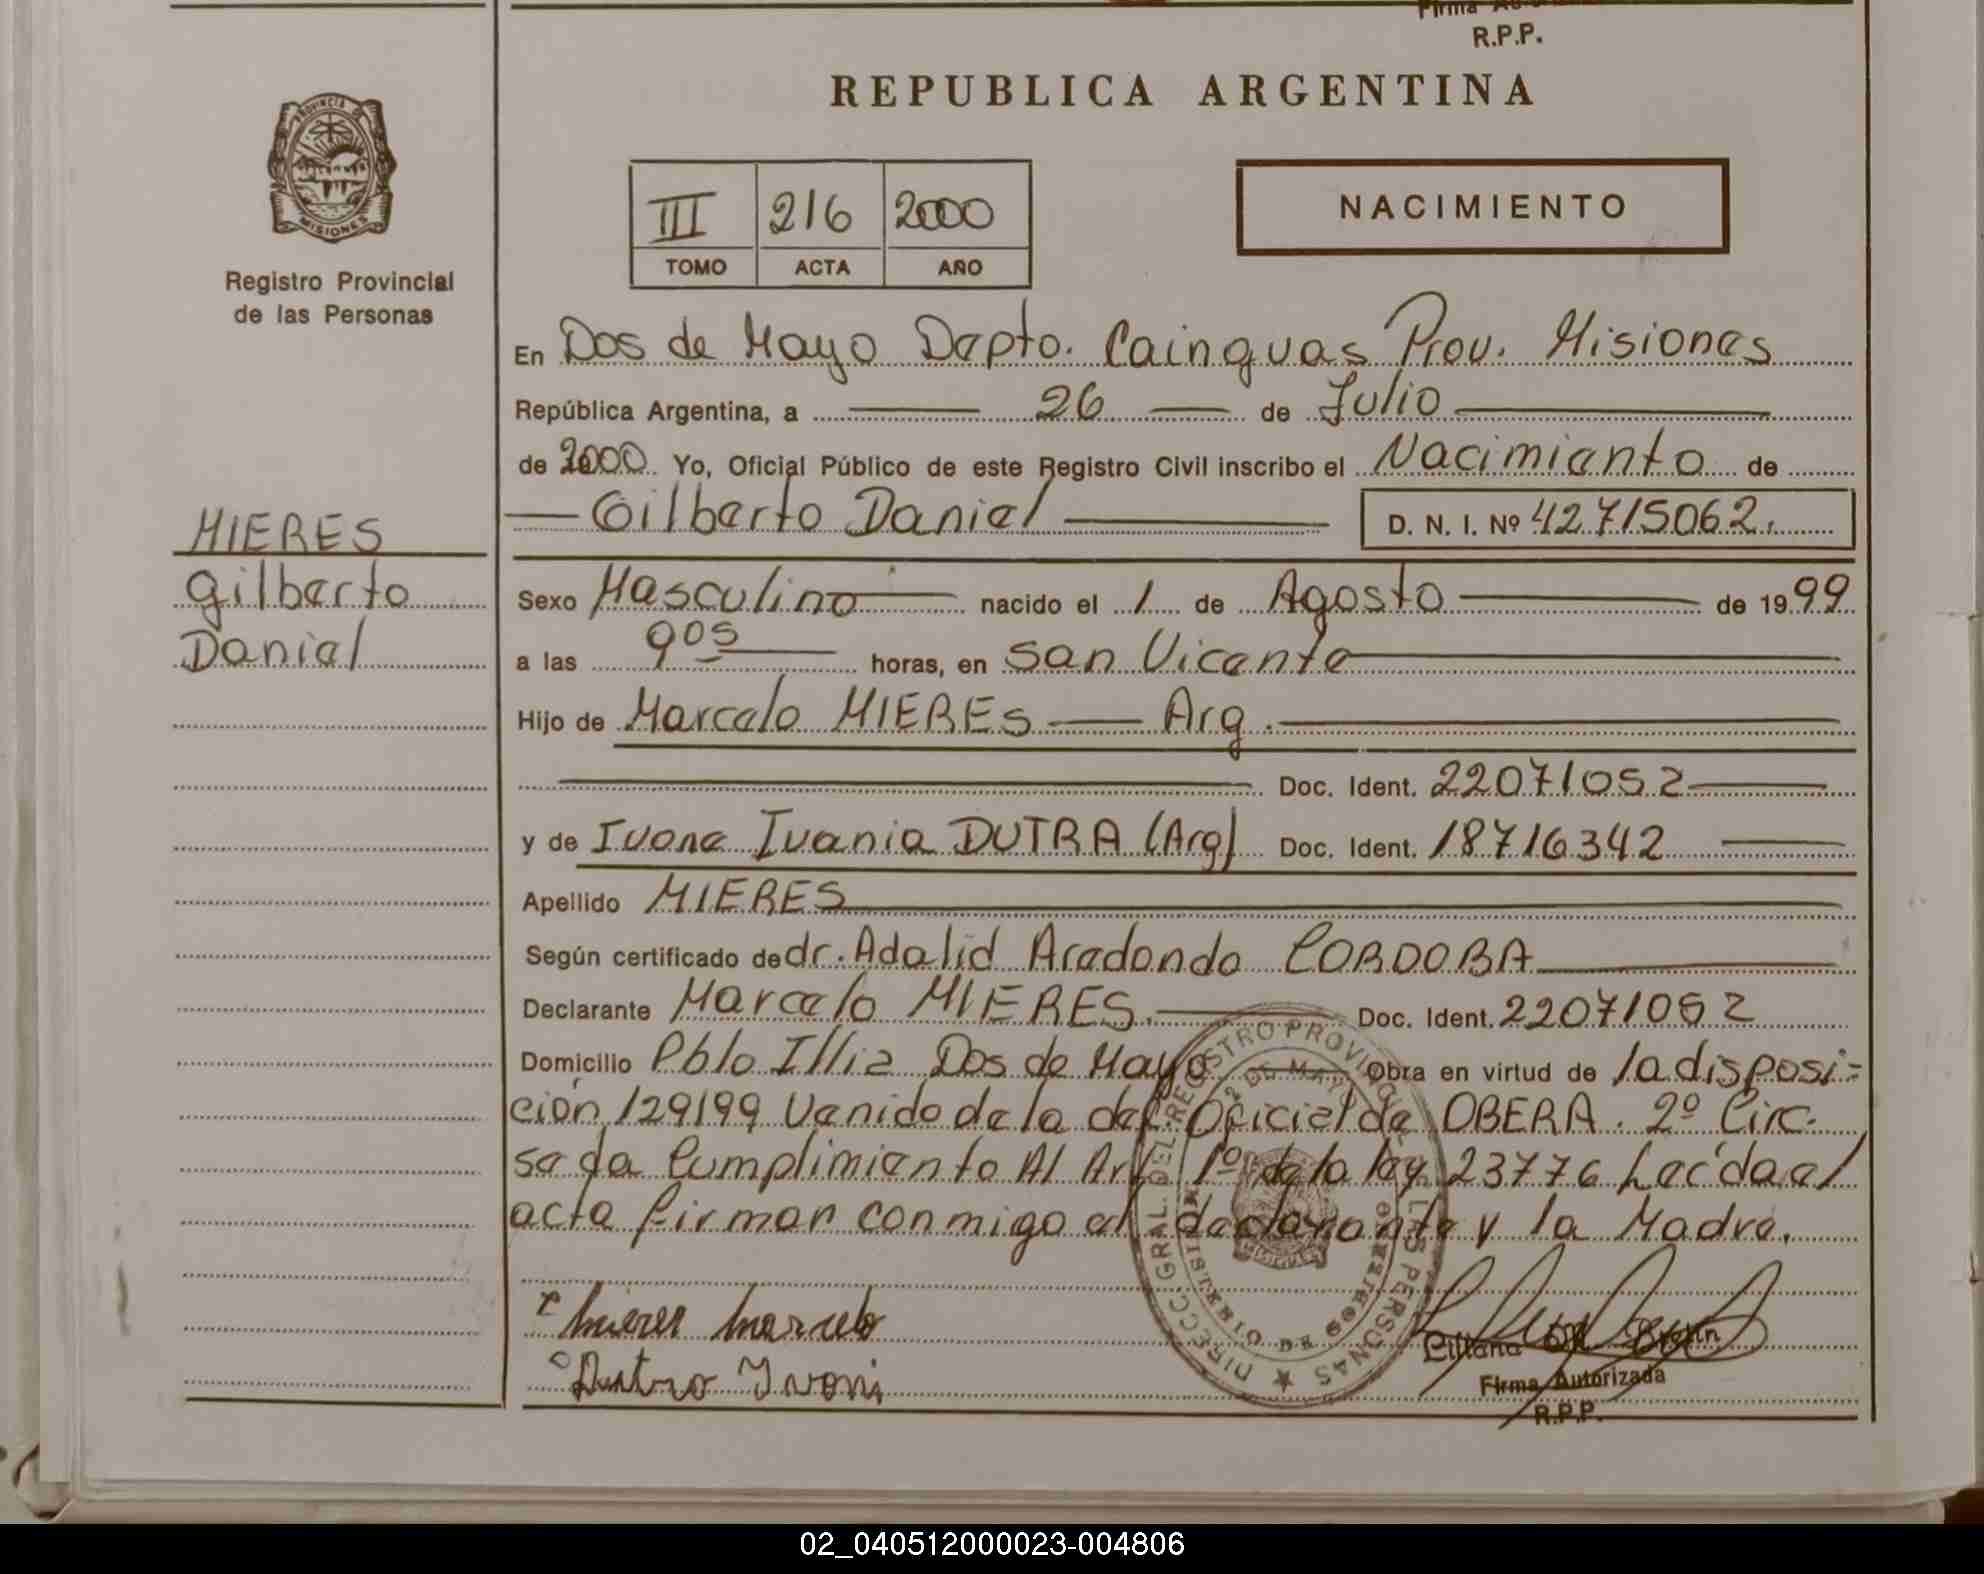 Firma Autorizada
R.P.P.
REPUBLICA ARGENTINA
PROVINCIA DE
MISIONES
Registro Provincial
de las Personas
III 216 2000
TOMO ACTA AÑO
NACIMIENTO
En Dos de Mayo Depto. Cainguas Prov. Misiones
República Argentina, a 26 de Julio
de 2000 Yo, Oficial Público de este Registro Civil inscribo el Nacimiento de
Gilberto Daniel D. N. I. Nº 42715062.
MIERES
Gilberto
Daniel
Sexo Masculino nacido el 1 de Agosto de 1999
a las 9 05 horas, en San Vicente
Hijo de Marcelo MIERES Arg.
Doc. Ident. 22071052
y de Ivone Ivania DUTRA (Arg) Doc. Ident. 18716342
Apellido MIERES
Según certificado de dr. Adalid Aredondo CORDOBA
Declarante Marcelo MIERES. Doc. Ident. 22071052
Domicilio Pblo Illia Dos de Mayo Obra en virtud de la disposi-
ción 129199 Venido de la del. Oficial de OBERA. 2º Circ.
se da Cumplimiento Al Art 1º de la ley 23776 Leída el
acta firman conmigo el declarante y la Madre.
Mieres Marcelo
Dutra Ivoni
DIRECC. GRAL. DEL REGISTRO PROVINCIAL DE LAS PERSONAS
2 DE MAYO
MISIONES
Liliana Brehn
Firma Autorizada
R.P.P.
02_040512000023-004806